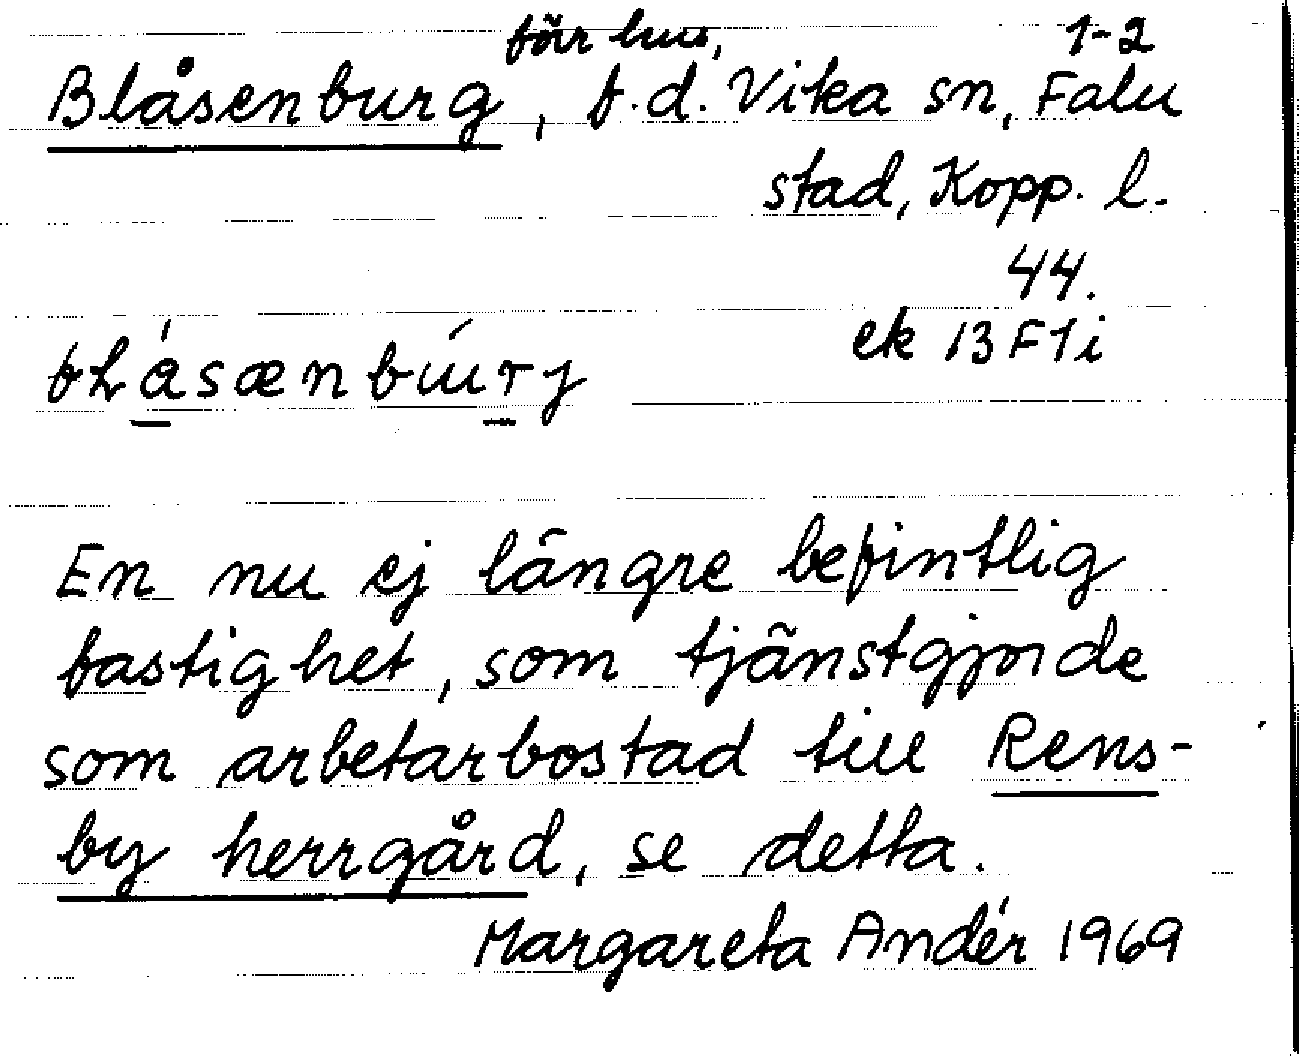 förr hus, 1-2
Blåsenburg, f.d. Vika sn, Falu
stad, Kopp. l.
44.
ek 13 F 1 i
En nu ej längre befintlig
fastighet, som tjänstgjorde
som arbetarbostad till Rens-
by herrgård, se detta.
Margareta Andér 1969